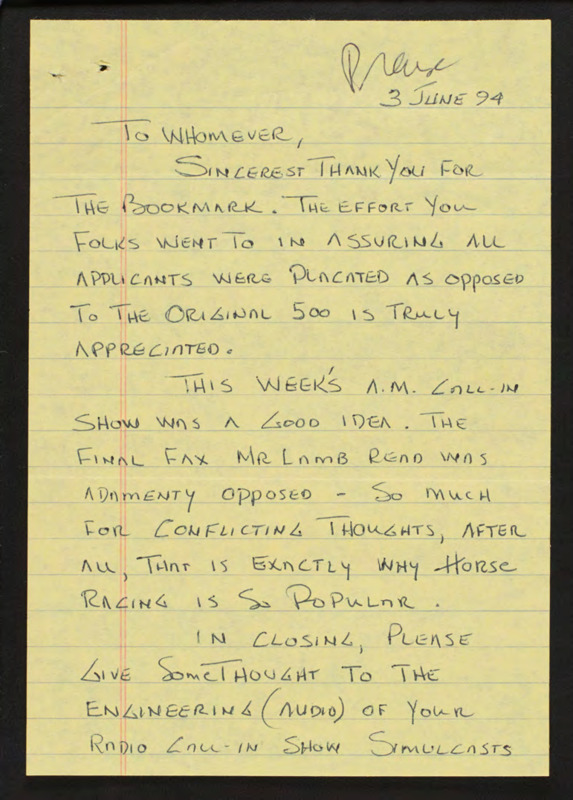 Praise
3 JUNE 94
TO WHOMEVER,
SINCEREST THANK YOU FOR
THE BOOKMARK. THE EFFORT YOU
FOLKS WENT TO IN ASSURING ALL
APPLICANTS WERE PLACATED AS OPPOSED
TO THE ORIGINAL 500 IS TRULY
APPRECIATED.
THIS WEEK'S A.M. CALL-IN
SHOW WAS A GOOD IDEA. THE
FINAL FAX MR LAMB READ WAS
ADAMENTY OPPOSED - SO MUCH
FOR CONFLICTING THOUGHTS, AFTER
ALL, THAT IS EXACTLY WHY HORSE
RACING IS SO POPULAR.
IN CLOSING, PLEASE
GIVE SOME THOUGHT TO THE
ENGINEERING (AUDIO) OF YOUR
RADIO CALL-IN SHOW SIMULCASTS